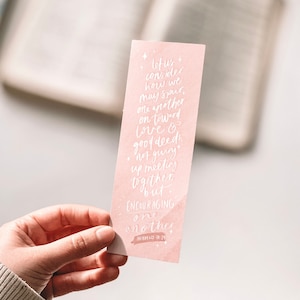 let us
consider
how we
may spur
one another
on toward
love &
good deeds
not giving
up meeting
together
but
ENCOURAGING
one
another
HEBREWS 10:24